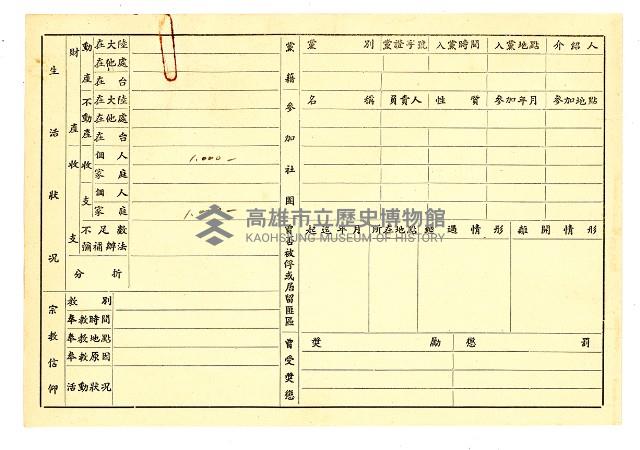 生活狀況
財產
動產
在大陸
在他處
在台
不動產
在大陸
在他處
在台
收支
收
個人
1.000-
家庭
支
個人
家庭
不足數
彌補辦法
分析
宗教信仰
教別
奉教時間
奉教地點
奉教原因
活動狀況
黨籍
黨別
黨證字號
入黨時間
入黨地點
介紹人
參加社團
名稱
負責人
性質
參加年月
參加地點
曾否被俘或居留匪區
起迄年月
所在地點
經過情形
離開情形
曾受獎懲
獎勵
懲罰
高雄市立歷史博物館
KAOHSIUNG MUSEUM OF HISTORY